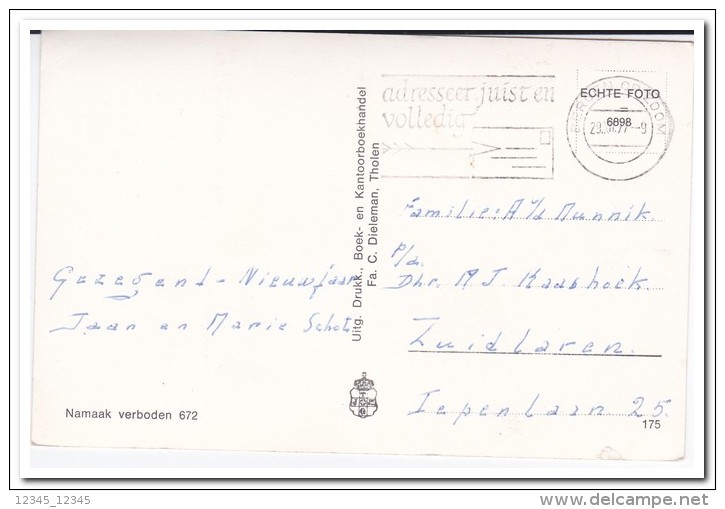 adresseer juist en
volledig
ECHTE FOTO
6898
BERGEN OP ZOOM
Familie: A v/d Munnik.
p/a.
Dhr. M J. Kaashoek.
Zuidlaren.
Iepenlaan 25.
Gezegend - Nieuwjaar
Jaan en Marie Schot
Uitg. Drukk., Boek- en Kantoorboekhandel
Fa. C. Dieleman, Tholen
Namaak verboden 672
175
12345_12345
delcampe.net